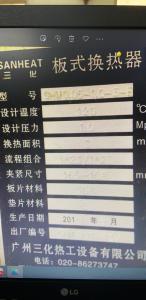 SANHEAT 板式换热器
三化
型号
设计温度
设计压力 Mp
换热面积
流程组合
夹紧尺寸 mm
板片材料
垫片材料
生产日期 201 年 月
出厂编号
广州三化热工设备有限公司
电话：020-86273747
LG